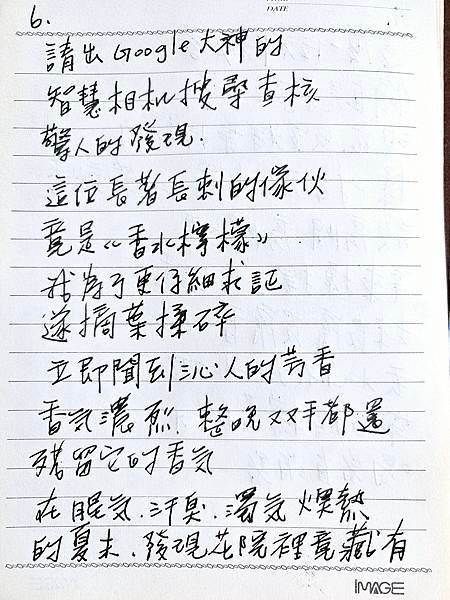 DATE
6.
請出Google大神的
智慧相机搜尋查核
驚人的發現.
這位長著長刺的傢伙
竟是《香水檸檬》
我為了更仔細求証
遂摘葉揉碎
立即聞到沁人的芳香
香氣濃烈.整晚双手都還
殘留它的香气
在暑气.汗臭.濁气 燠熱
的夏末.發現花院裡竟藏有
IMAGE
IMAGE